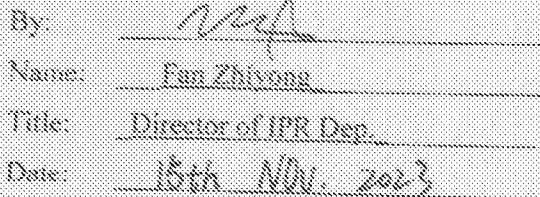 By:
Name: Fan Zhiyong
Title: Director of IPR Dep.
Date: 15th NOV. 2023